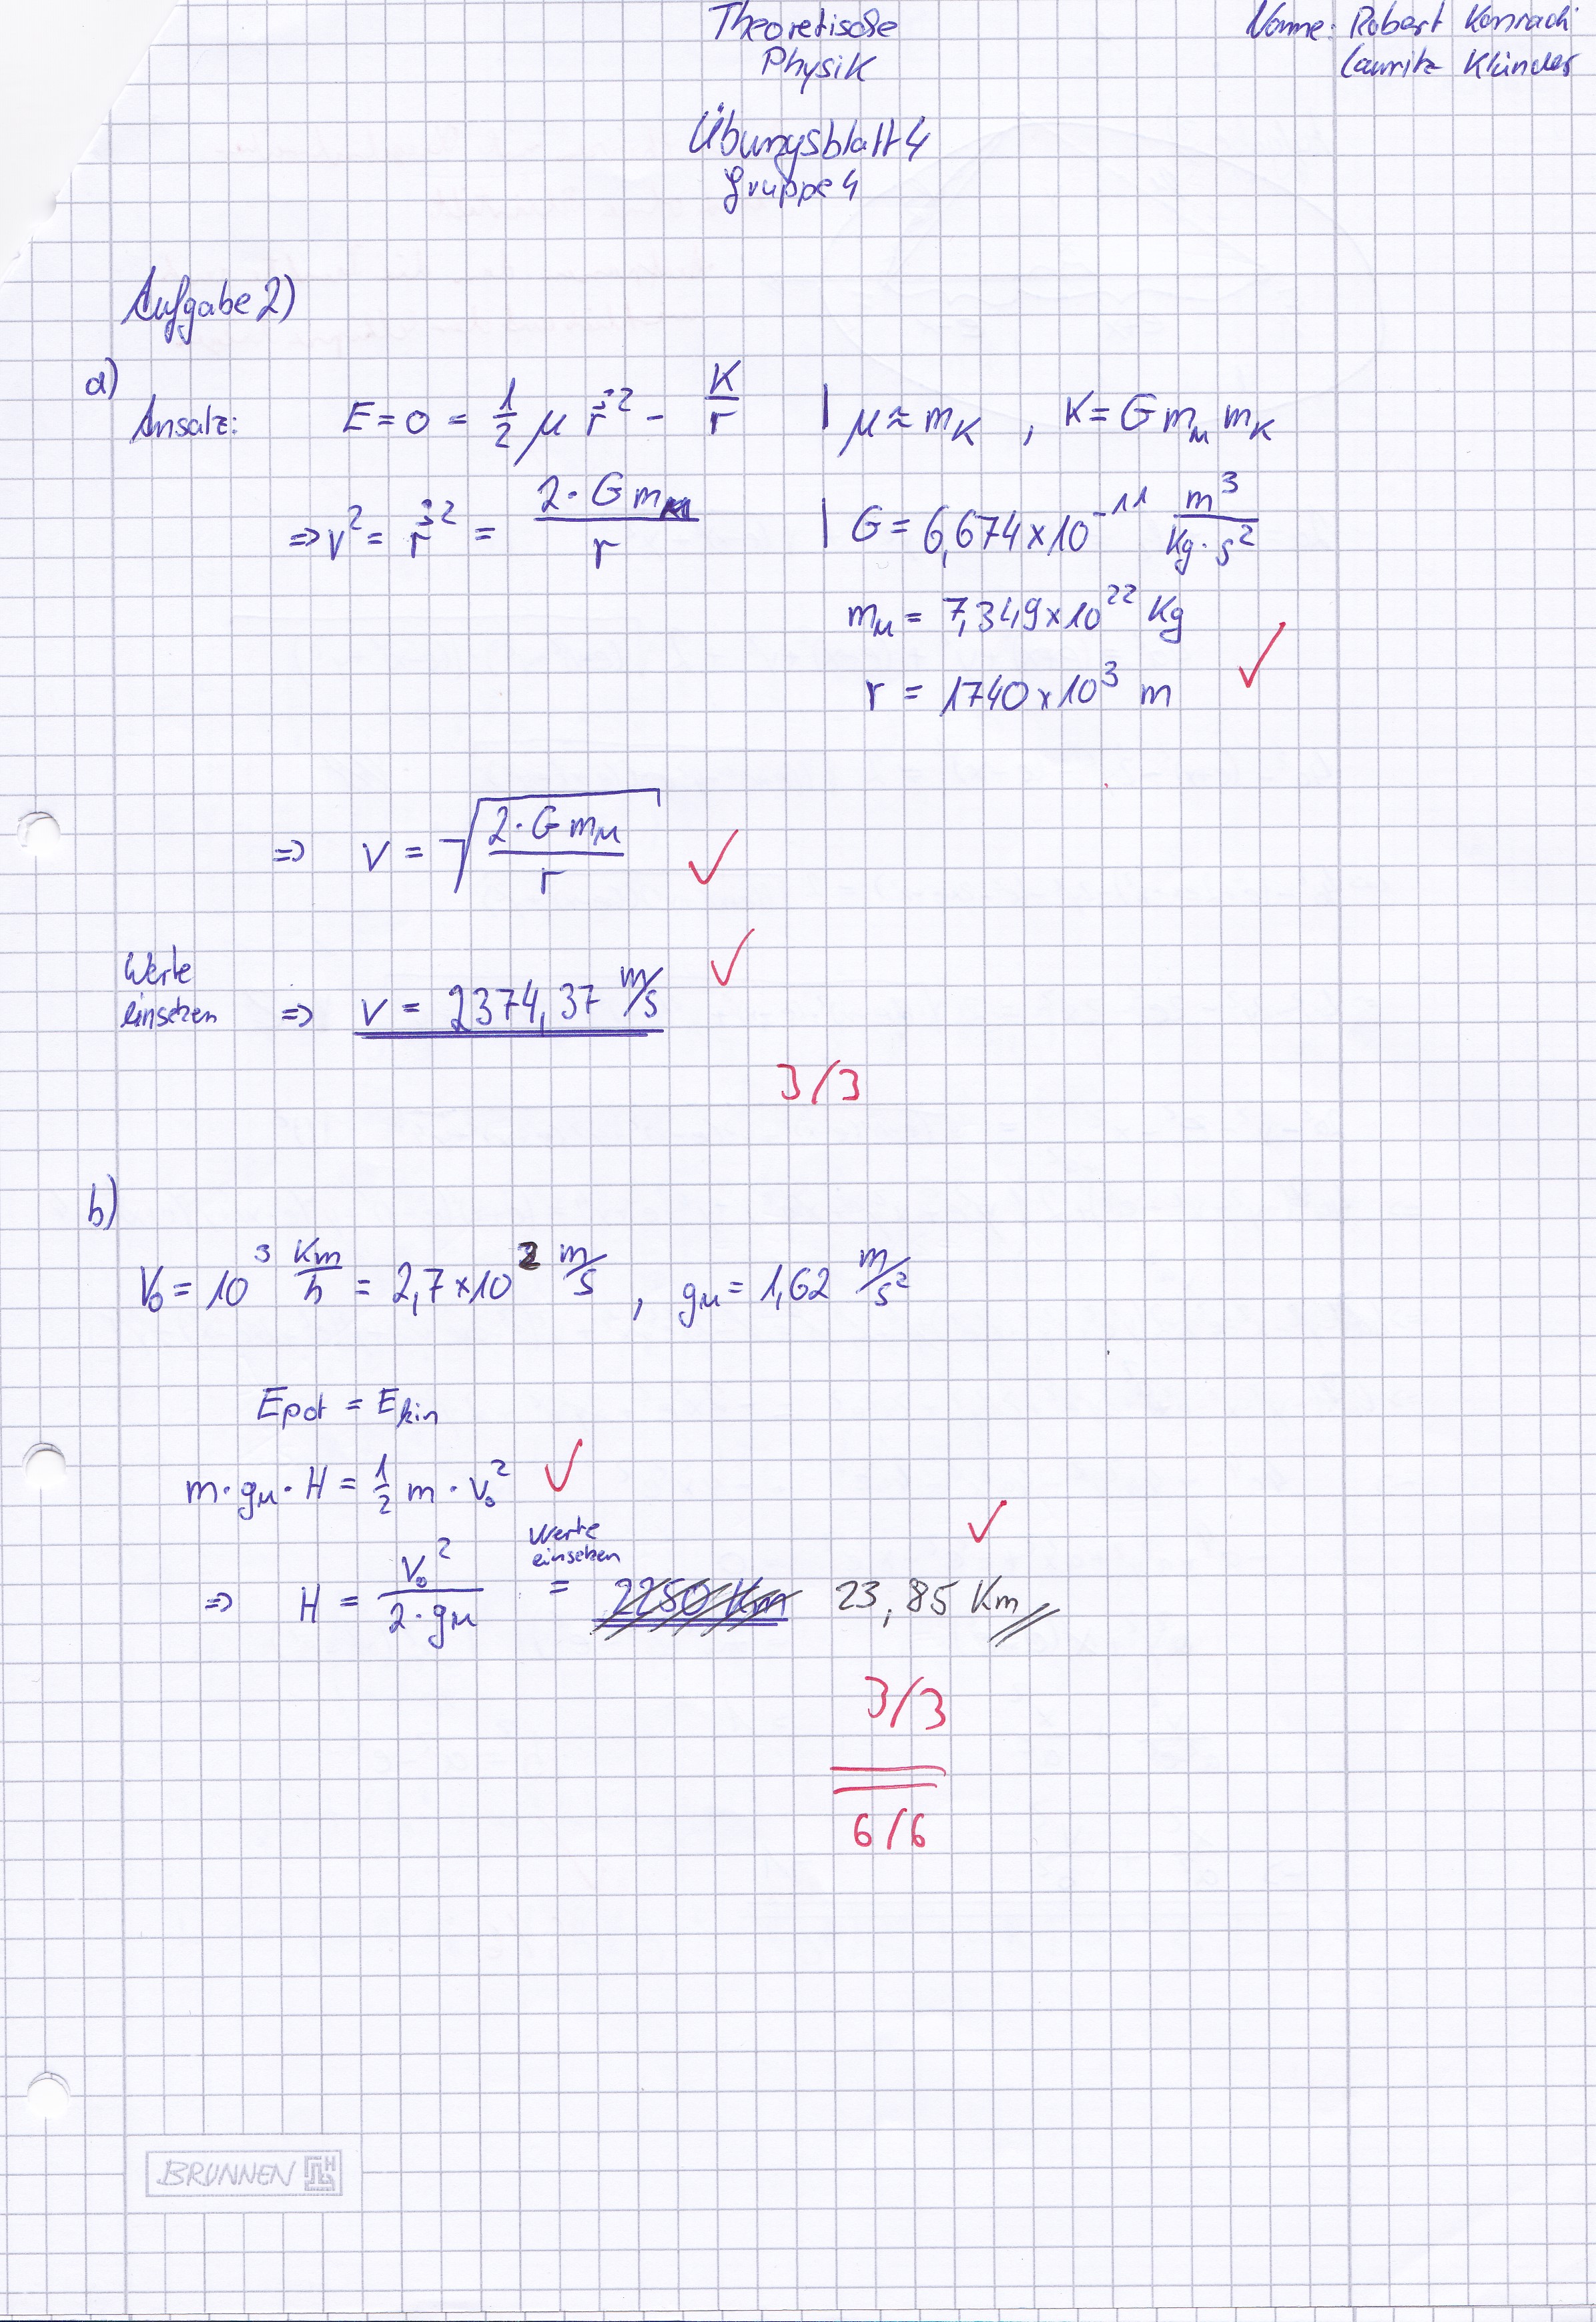 Theoretische
Physik
Name: Robert Konrad
Lauritz Klünder
Übungsblatt 4
Gruppe 4
Aufgabe 2)
a)
Ansatz: E = 0 = 1/2 μ ṙ⃗² - K/r | μ ≈ m_K , K = G m_M m_K
=> v² = ṙ⃗² = 2·G m_M / r | G = 6,674 × 10⁻¹¹ m³/Kg·s²
m_M = 7,349 × 10²² Kg
r = 1740 × 10³ m ✓
=> v = √(2·G m_M / r) ✓
Werte
einsetzen => v = 2374,37 m/s ✓
3/3
b)
V₀ = 10³ Km/h = 2,7 × 10² m/s , g_M = 1,62 m/s²
Epot = Ekin
m·g_M·H = 1/2 m·v₀² ✓
=> H = V₀² / 2·g_M = Werte einsetzen 2250 Km 23,85 Km ✓
3/3
6/6
BRUNNEN